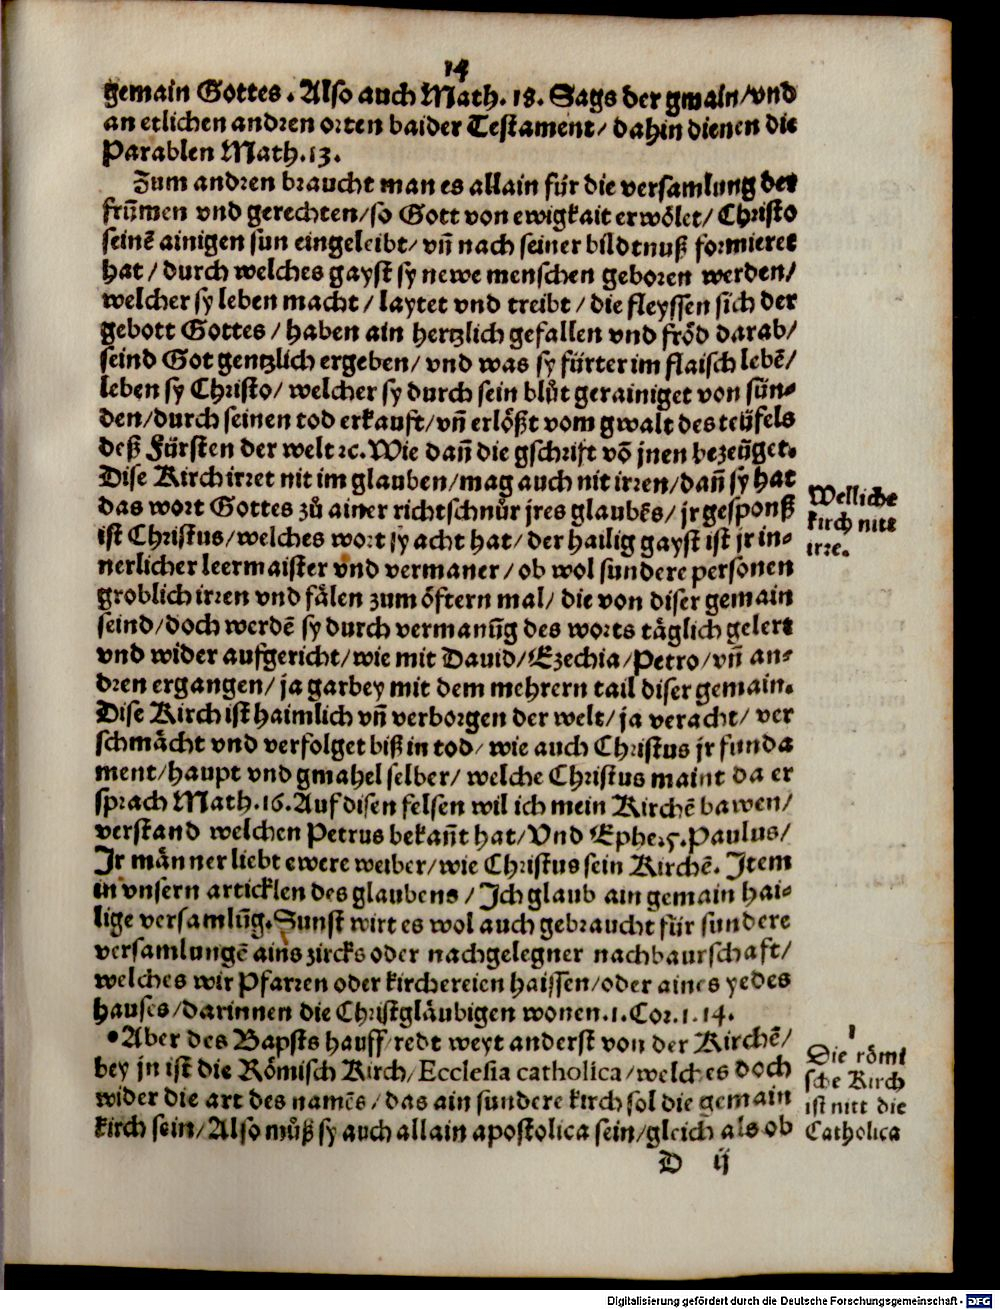 14
gemain Gottes. Also auch Math. 18. Sags der gmain/vnd
an etlichen andren orten baider Testament/ dahin dienen die
Parablen Math. 13.
Zum andren braucht man es allain für die versamlung der
frūmen vnd gerechten/so Gott von ewigkait erwölet/ Christo
seinē ainigen sun eingeleibt/ vn̄ nach seiner bildtnuß formieret
hat / durch welches gayst sy newe menschen geboren werden/
welcher sy leben macht / laytet vnd treibt / die fleyssen sich der
gebott Gottes / haben ain hertzlich gefallen vnd fröd darab/
seind Got gentzlich ergeben/ vnd was sy fürter im flaisch lebē/
leben sy Christo/ welcher sy durch sein blůt gerainiget von sün-
den/durch seinen tod erkauft/vn̄ erlößt vom gwalt des teüfels
deß Fürsten der welt ꝛc. Wie dan̄ die gschrift vō jnen bezeüget.
Dise Kirch irret nit im glauben/mag auch nit irren/dan̄ sy hat
das wort Gottes zů ainer richtschnůr jres glaubēs/ jr gesponß
ist Christus/welches wort sy acht hat/ der hailig gayst ist jr in-
nerlicher leermaister vnd vermaner / ob wol sundere personen
groblich irren vnd fälen zum öftern mal/ die von diser gemain
seind/doch werdē sy durch vermanūg des worts täglich gelert
vnd wider aufgericht/wie mit Dauid/Ezechia/Petro/vn̄ an-
dren ergangen/ ja garbey mit dem mehrern tail diser gemain.
Dise Kirch ist haimlich vn̄ verborgen der welt/ ja veracht/ ver
schmächt vnd verfolget biß in tod/ wie auch Christus jr funda
ment/haupt vnd gmahel selber/ welche Christus maint da er
sprach Math. 16. Auf disen felsen wil ich mein Kirchē bawen/
verstand welchen Petrus bekan̄t hat/ Vnd Ephe. 5. Paulus/
Jr männer liebt ewere weiber/wie Christus sein Kirchē. Jtem
in vnsern articklen des glaubens / Jch glaub ain gemain hai-
lige versamlūg. Sunst wirt es wol auch gebraucht für sundere
versamlungē ains zircks oder nachgelegner nachbaurschaft/
welches wir Pfarren oder kirchereien haissen/oder aines yedes
hauses/darinnen die Christgläubigen wonen. 1. Cor. 1. 14.
Aber des Bapsts hauff redt weyt anderst von der Kirchē/
bey jn ist die Römisch Kirch/Ecclesia catholica/welches doch
wider die art des namēs / das ain sundere kirch sol die gemain
kirch sein/Also můß sy auch allain apostolica sein/gleich als ob
D ij
Welliche
kirch nitt
irre.
1
Die römi
sche Kirch
ist nitt die
Catholica
Digitalisierung gefördert durch die Deutsche Forschungsgemeinschaft - DFG